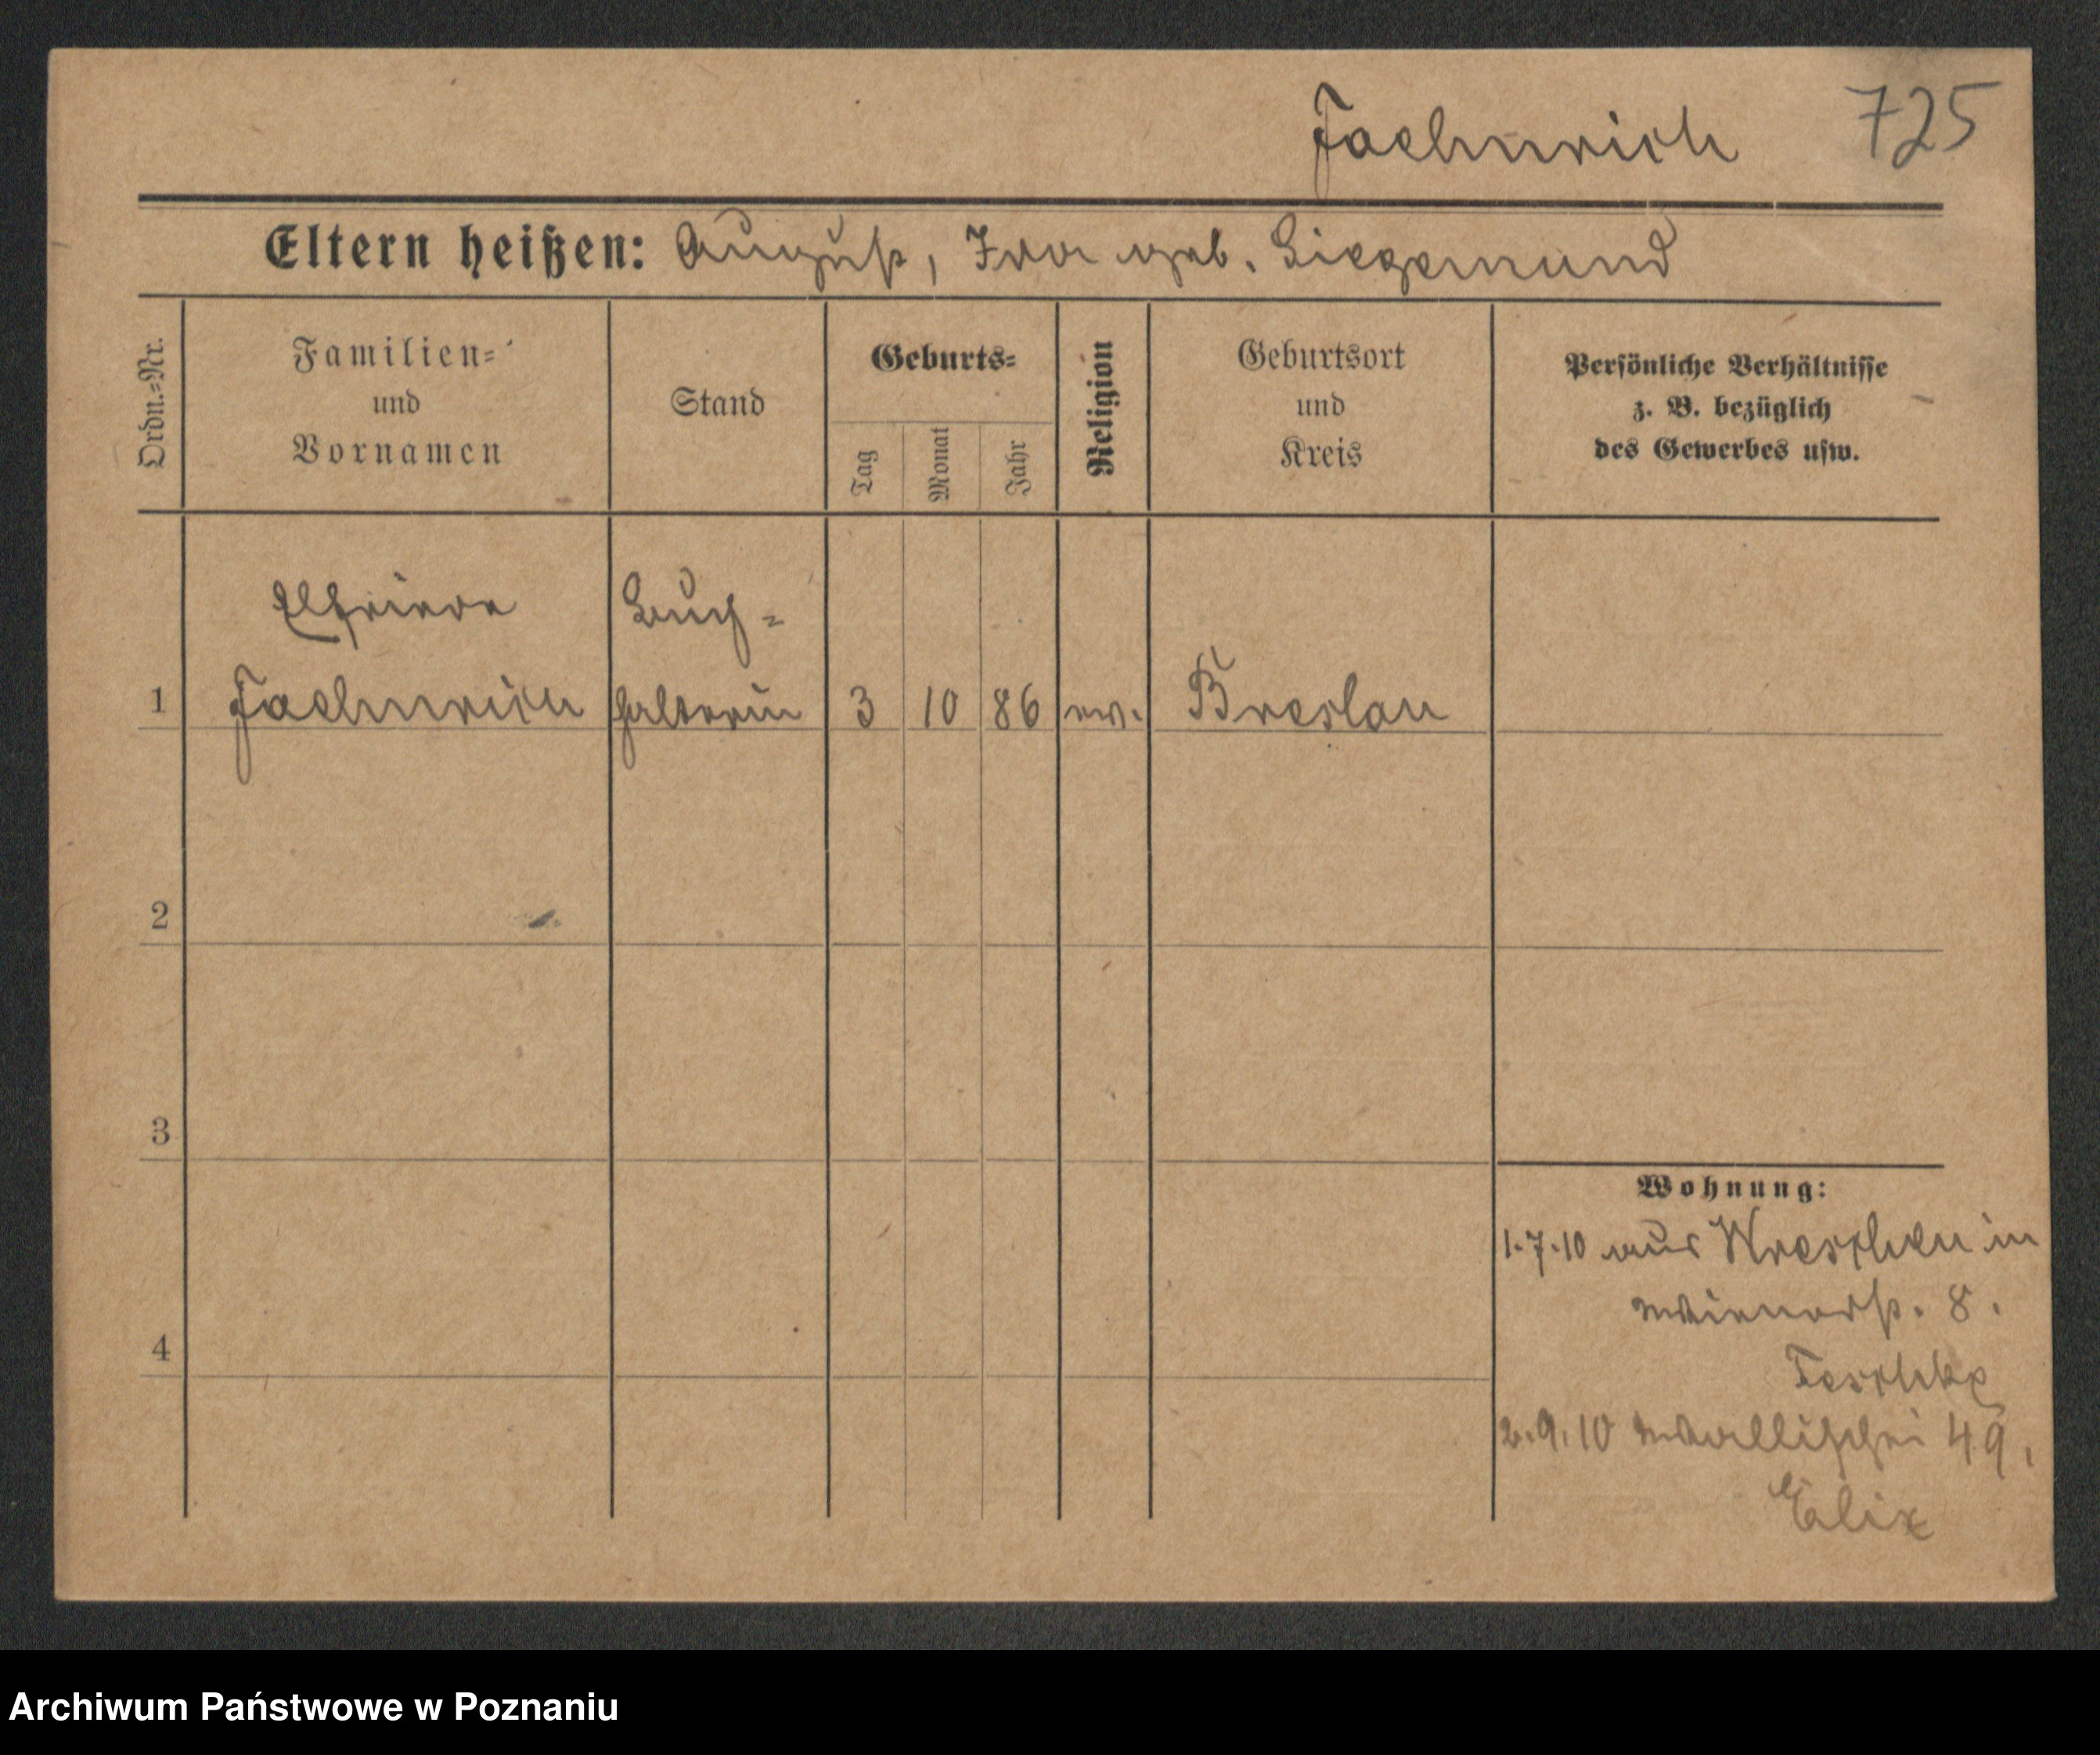 Faehnrich 725
Eltern heißen: August, Ida geb. Siegemund
Ordn.=Nr.
Familien=
und
Vornamen
Stand
Geburts=
Tag
Monat
Jahr
Religion
Geburtsort
und
Kreis
Persönliche Verhältnisse
z. B. bezüglich
des Gewerbes usw.
Elfriede
Faehnrich
Buch=
halterin
1 3 10 86 ev. Breslau
2
3
4
Wohnung:
1.7.10 aus Wreschen in
Wienerst. 8.
Teschke
2.9.10 Wallischei 49.
Elix
Archiwum Państwowe w Poznaniu